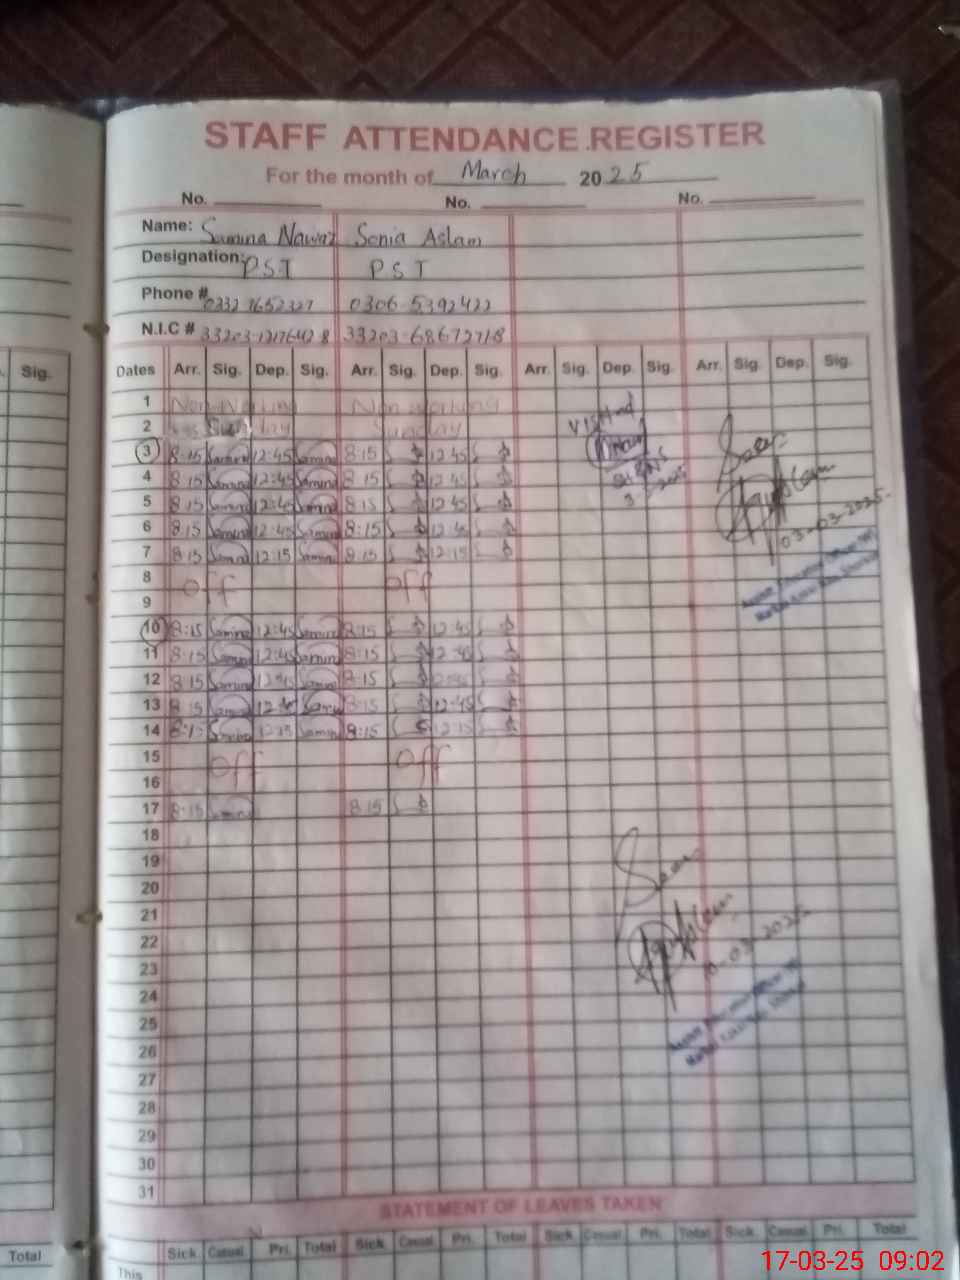 STAFF ATTENDANCE REGISTER
For the month of March 2025
No. No. No.
Name: Samina Nawaz Sonia Aslam
Designation: P.S.T P S T
Phone # 0306-5392422
N.I.C #
Sig. Dates Arr. Sig. Dep. Sig. Arr. Sig. Dep. Sig. Arr. Sig. Dep. Sig. Arr. Sig. Dep. Sig.
1 Non-Working Non working
2 Sunday Sunday
3 8:15 Samina 12:45 Samina 8:15 12:45
4 8:15 Samina 12:45 Samina 8:15 12:45
5 8:15 Samina 12:45 Samina 8:15 12:45
6 8:15 Samina 12:45 Samina 8:15 12:45
7 8:15 Samina 12:15 Samina 8:15 12:15
8 off off
9
10 8:15 Samina 12:45 Samina 8:15 12:45
11 8:15 Samina 12:45 Samina 8:15
12 8:15 Samina 12:45 Samina 8:15
13 8:15 Samina Samina 8:15 12:45
14 Samina 8:15
15 off off
16
17 8:15 Samina 8:15
18
19
20
21
22
23
24
25
26
27
28
29
30
31
Visited
03-03-2025
Aslam
10-03-2025
STATEMENT OF LEAVES TAKEN
Total Sick Casual Pri. Total Sick Casual Pri. Total Sick Casual Pri. Total Sick Casual Pri. Total
This
17-03-25 09:02